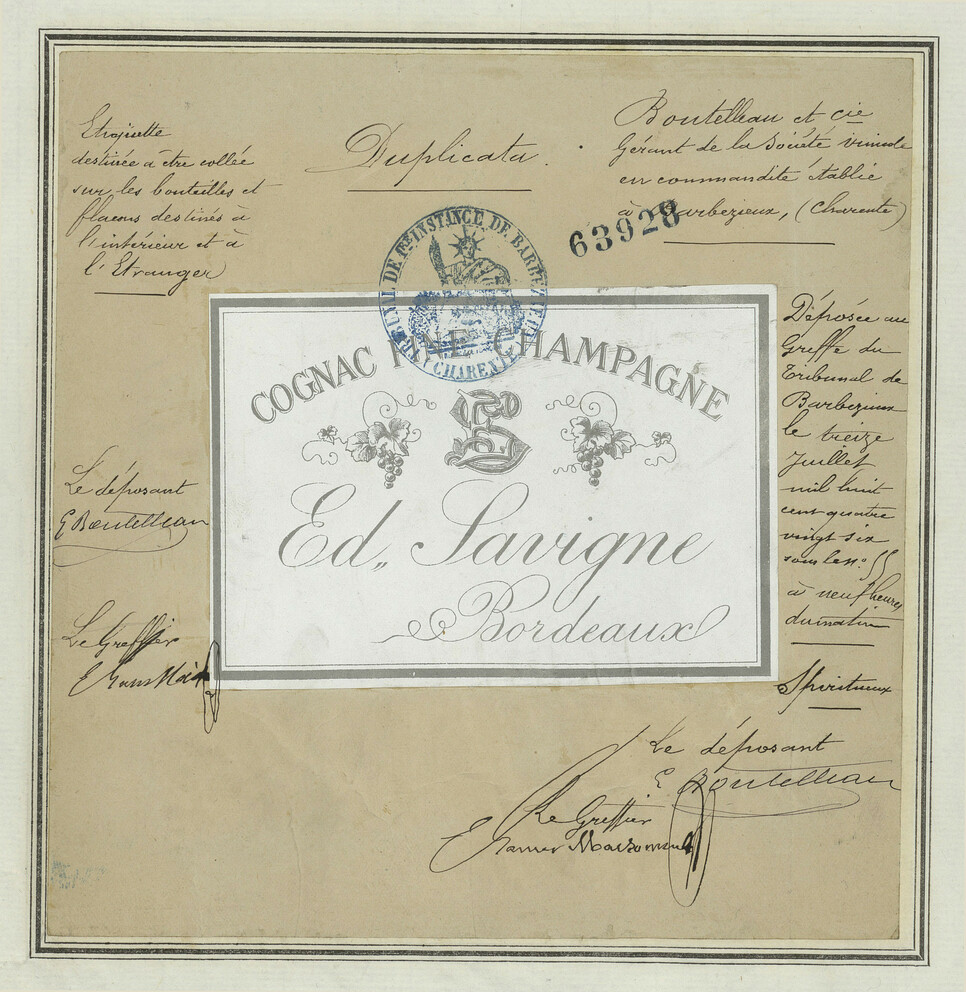 Etiquette
destinée à être collée
sur les bouteilles et
flacons destinés à
l'intérieur et à
l'Etranger
Duplicata.
Boutelleau et cie
Gérant de la Société vinicole
en commandite établie
à Barbezieux, (Charente)
63928
TRIBUNAL DE 1RE INSTANCE DE BARBEZIEUX
(CHARENTE)
COGNAC FINE CHAMPAGNE
ES
Ed,, Savigne
Bordeaux
Déposée au
Greffe du
Tribunal de
Barbezieux
le treize
Juillet
mil huit
cent quatre
vingt six
sous le n° 55
à neuf heures
du matin
Spiritueux
Le déposant
E Boutelleau
Le Greffier
Le déposant
E Boutelleau
Le Greffier